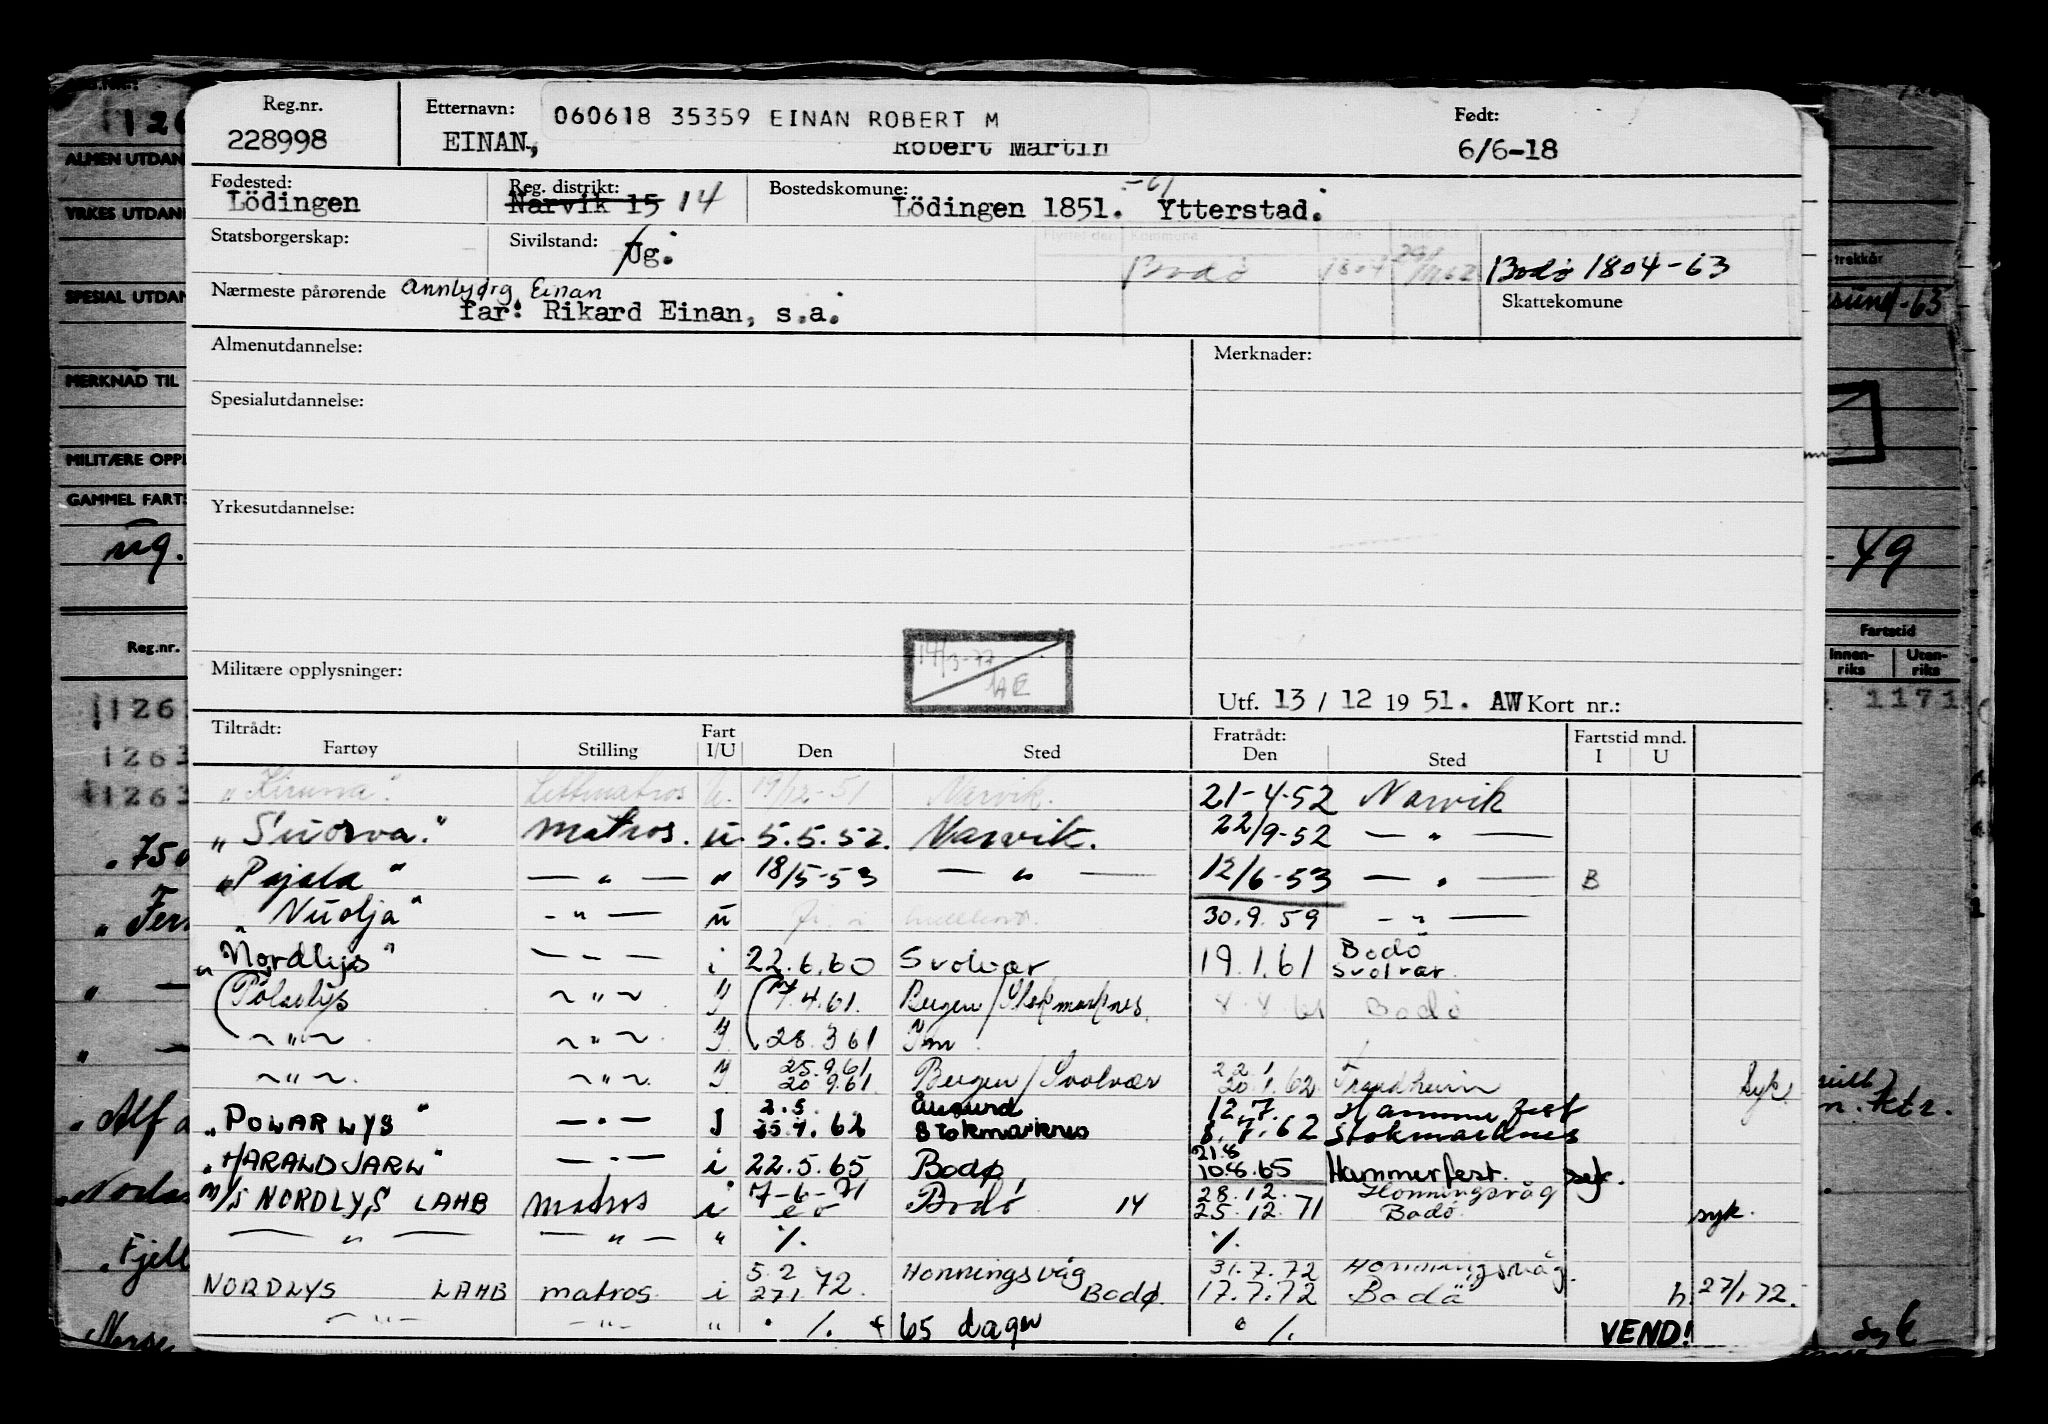 Reg.nr. Etternavn: 060618 35359 EINAN ROBERT M Født:
228998 EINAN, Robert Martin 6/6-18
Fødested: Reg. distrikt: Bostedskomune: -61
Lödingen Narvik 15 14 Lödingen 1851. Ytterstad.
Statsborgerskap: Sivilstand: Ug.
Bodö 1804 Bodö 1804-63
Nærmeste pårørende Annbjørg Einan Skattekomune
far: Rikard Einan, s.a.
Almenutdannelse: Merknader:
Spesialutdannelse:
Yrkesutdannelse:
Militære opplysninger: 14/3-77
Utf. 13 / 12 19 51. AW Kort nr.:
Tiltrådt: Fart Fratrådt: Fartstid mnd.
Fartøy Stilling I/U Den Sted Den Sted I U
"Kiruna" Lettmatros u. 19/12-51 Narvik. 21-4-52 Narvik
"Suorva" matros. u 5.5.52. Narvik. 22/9-52 — " —
"Pajala" — " — " 18/5-53 — " — 12/6-53 — " — B
"Nuolja" - " — u 30.9.59 - " —
"Nordlys" — " — i 22.6.60 Svolvær 19.1.61 Bodö Svolvær
Polarlys ~ " ~ 4.61. Bergen/Stokmarknes 61 Bodö
~ " ~ ~ " ~ 28.3 61
25.9.61 22.1
~ " ~. ~ " ~. 20 9.61. Bergen/Svolvær 20.1.62. Trondheim Syk.
2.5. Ålesund 12.7. Hammerfest
"POLARLYS" — " — I 62 Stokmarknes 7.62 Stokmarknes
21.8
"HARALD JARL" — " — i 22.5.65 Bodø 10.8.65 Hammerfest. syk.
28.12. Honningsvåg
M/S NORDLYS LAHB matros i 7-6-71 Bodö 14 25.12.71 Bodö syk.
— " — — " — " ·/. ·/.
5.2 Honningsvåg 31.7.72 Honningsvåg.
NORDLYS LAHB matros i 27.1 72. Bodø. 17.7.72 Bodö h. 27/1 72.
— " — — " — " ·/. + 65 dager ·/. VEND!
ALMEN UTDAN
YRKES UTDAN
SPESIAL UTDAN
MERKNAD TIL
MILITÆRE OPPL
GAMMEL FARTS
ug.
Reg.nr.
1263
1263
Alf
Fjell
trekkår
sund-63
- 49
Fartstid
Innen-riks Uten-riks
1171
syk